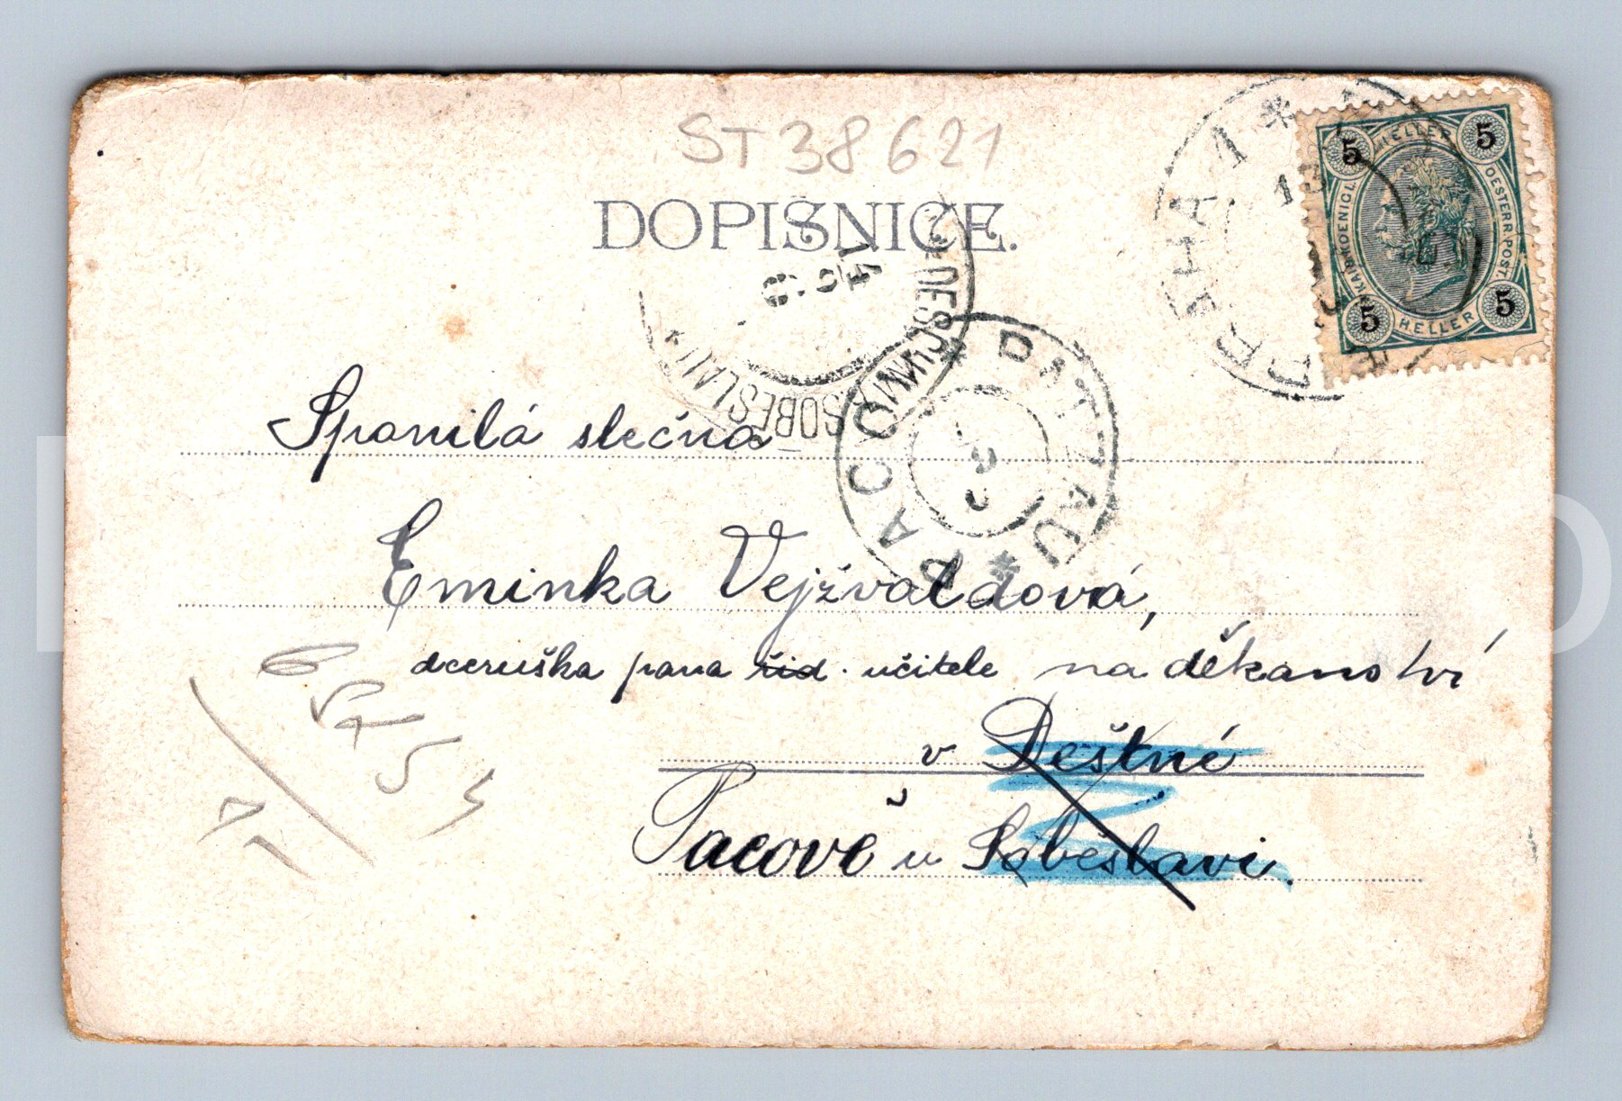 ST 38621
DOPISNICE.
PRAHA 1
5 HELLER 5
KAIS. KOENIGL. OESTERR. POST.
5 HELLER 5
SOBESLAU
PACOV PATZAU
Spanilá slečna
Eminka Vejžvaldová,
dceruška pana řid. učitele na děkanství
v Deštné
Pacově u Soběslavi.